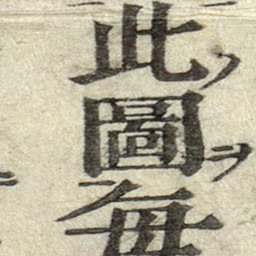 此ノ圖ヲ毎